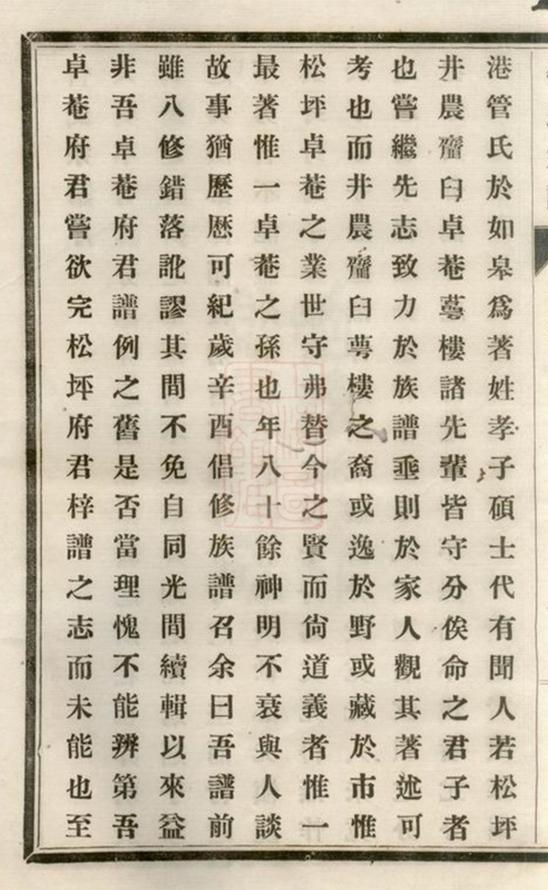 港管氏於如皋為著姓孝子碩士代有聞人若松坪
井農癯臼卓菴蕚樓諸先輩皆守分俟命之君子者
也嘗繼先志致力於族譜垂則於家人觀其著述可
考也而井農癯臼蕚樓之裔或逸於野或藏於市惟
松坪卓菴之業世守弗替今之賢而尙道義者惟一
最著惟一卓菴之孫也年八十餘神明不衰與人談
故事猶歷歷可紀歲辛酉倡修族譜召余曰吾譜前
雖八修錯落訛謬其間不免自同光間續輯以來益
非吾卓菴府君譜例之舊是否當理愧不能辨第吾
卓菴府君嘗欲完松坪府君梓譜之志而未能也至